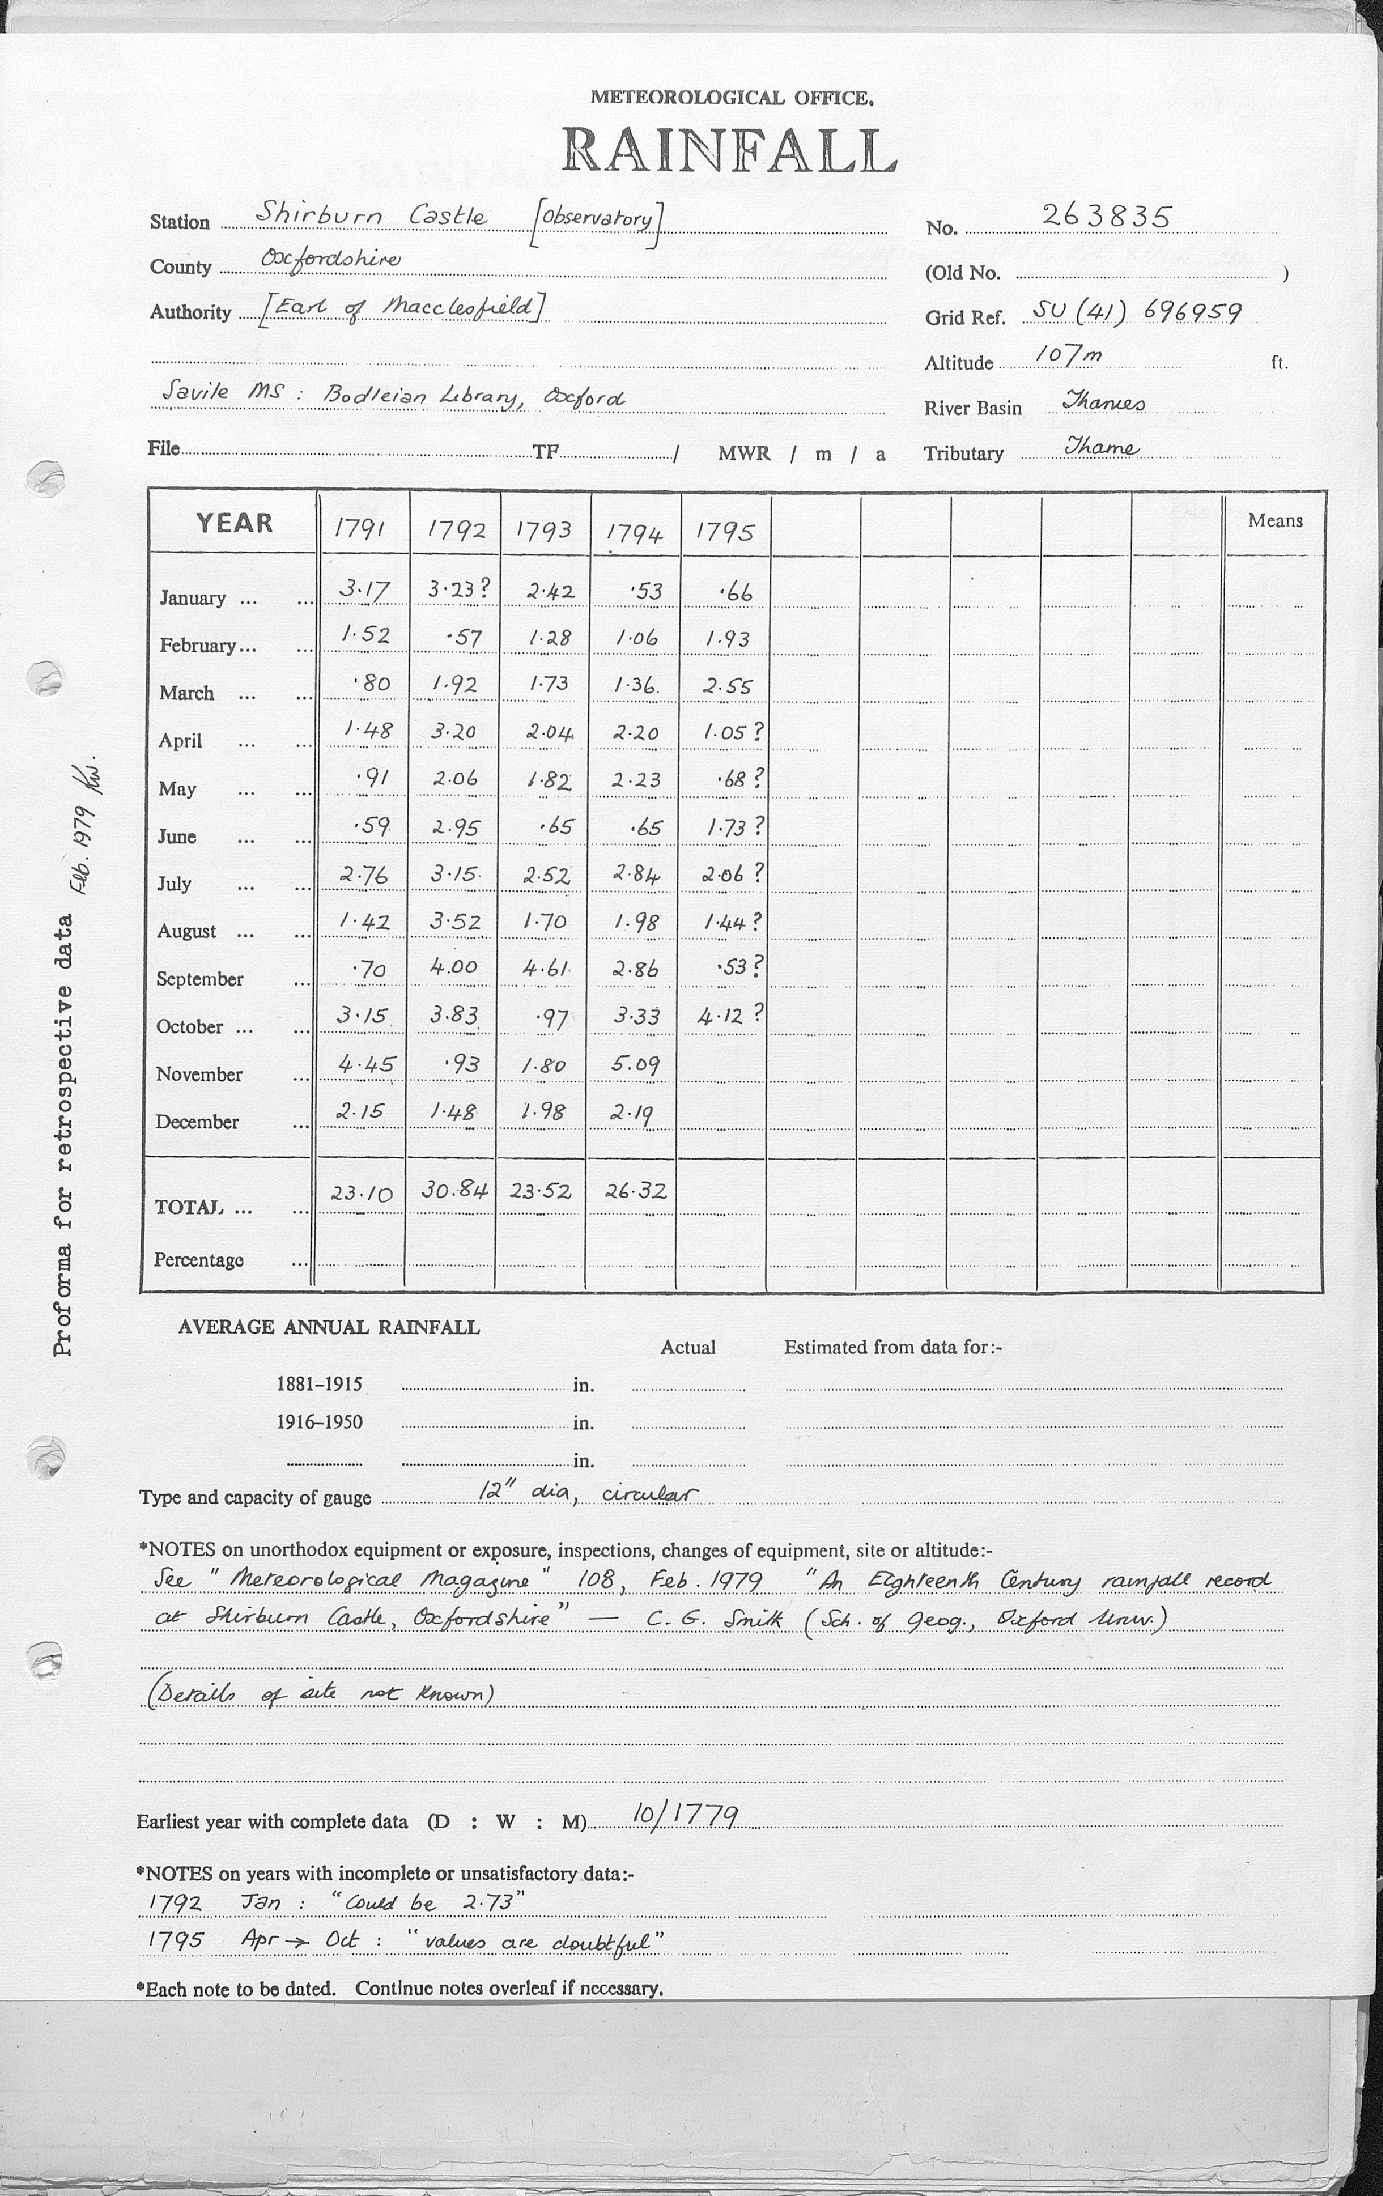 METEOROLOGICAL OFFICE.
RAINFALL
Station Shirburn Castle [Observatory] No. 263835
County Oxfordshire (Old No. )
Authority [Earl of Macclesfield] Grid Ref. SU (41) 696959
Altitude 107m ft.
Savile MS : Bodleian Library, Oxford River Basin Thames
File TF / MWR / m / a Tributary Thame
YEAR 1791 1792 1793 1794 1795 Means
January ... ... 3.17 3.23? 2.42 .53 .66
February... ... 1.52 .57 1.28 1.06 1.93
March ... ... .80 1.92 1.73 1.36 2.55
April ... ... 1.48 3.20 2.04 2.20 1.05?
May ... ... .91 2.06 1.82 2.23 .68?
June ... ... .59 2.95 .65 .65 1.73?
July ... ... 2.76 3.15 2.52 2.84 2.06?
August ... ... 1.42 3.52 1.70 1.98 1.44?
September ... .70 4.00 4.61 2.86 .53?
October ... ... 3.15 3.83 .97 3.33 4.12?
November ... 4.45 .93 1.80 5.09
December ... 2.15 1.48 1.98 2.19
TOTAL ... ... 23.10 30.84 23.52 26.32
Percentage ...
Proforma for retrospective data Feb. 1979 KW.
AVERAGE ANNUAL RAINFALL
Actual Estimated from data for:-
1881-1915 in.
1916-1950 in.
in.
Type and capacity of gauge 12" dia, circular
*NOTES on unorthodox equipment or exposure, inspections, changes of equipment, site or altitude:-
See "Meteorological Magazine" 108, Feb. 1979 "An Eighteenth Century rainfall record
at Shirburn Castle, Oxfordshire" — C. G. Smith (Sch. of Geog., Oxford Univ.)
(Details of site not known)
Earliest year with complete data (D : W : M) 10/1779
*NOTES on years with incomplete or unsatisfactory data:-
1792 Jan : "Could be 2.73"
1795 Apr → Oct : "values are doubtful"
*Each note to be dated. Continue notes overleaf if necessary.